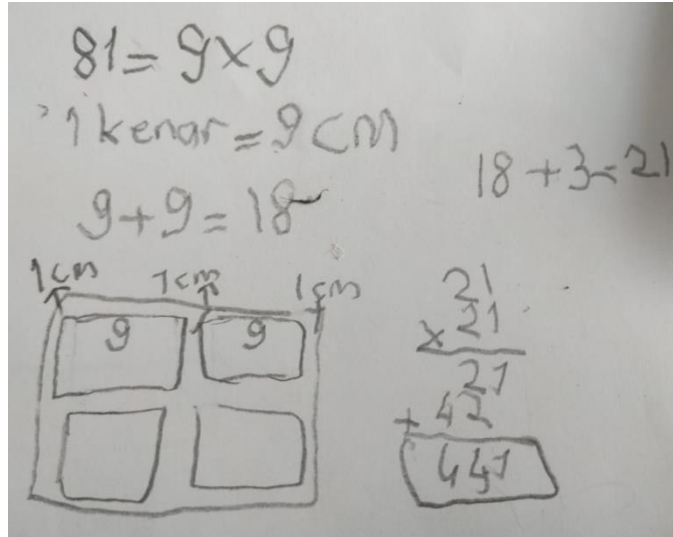 81=9x9
1 kenar=9cm
9+9=18
18+3=21
1cm 1cm 1cm
9 9
21
x 21
21
+ 42
441